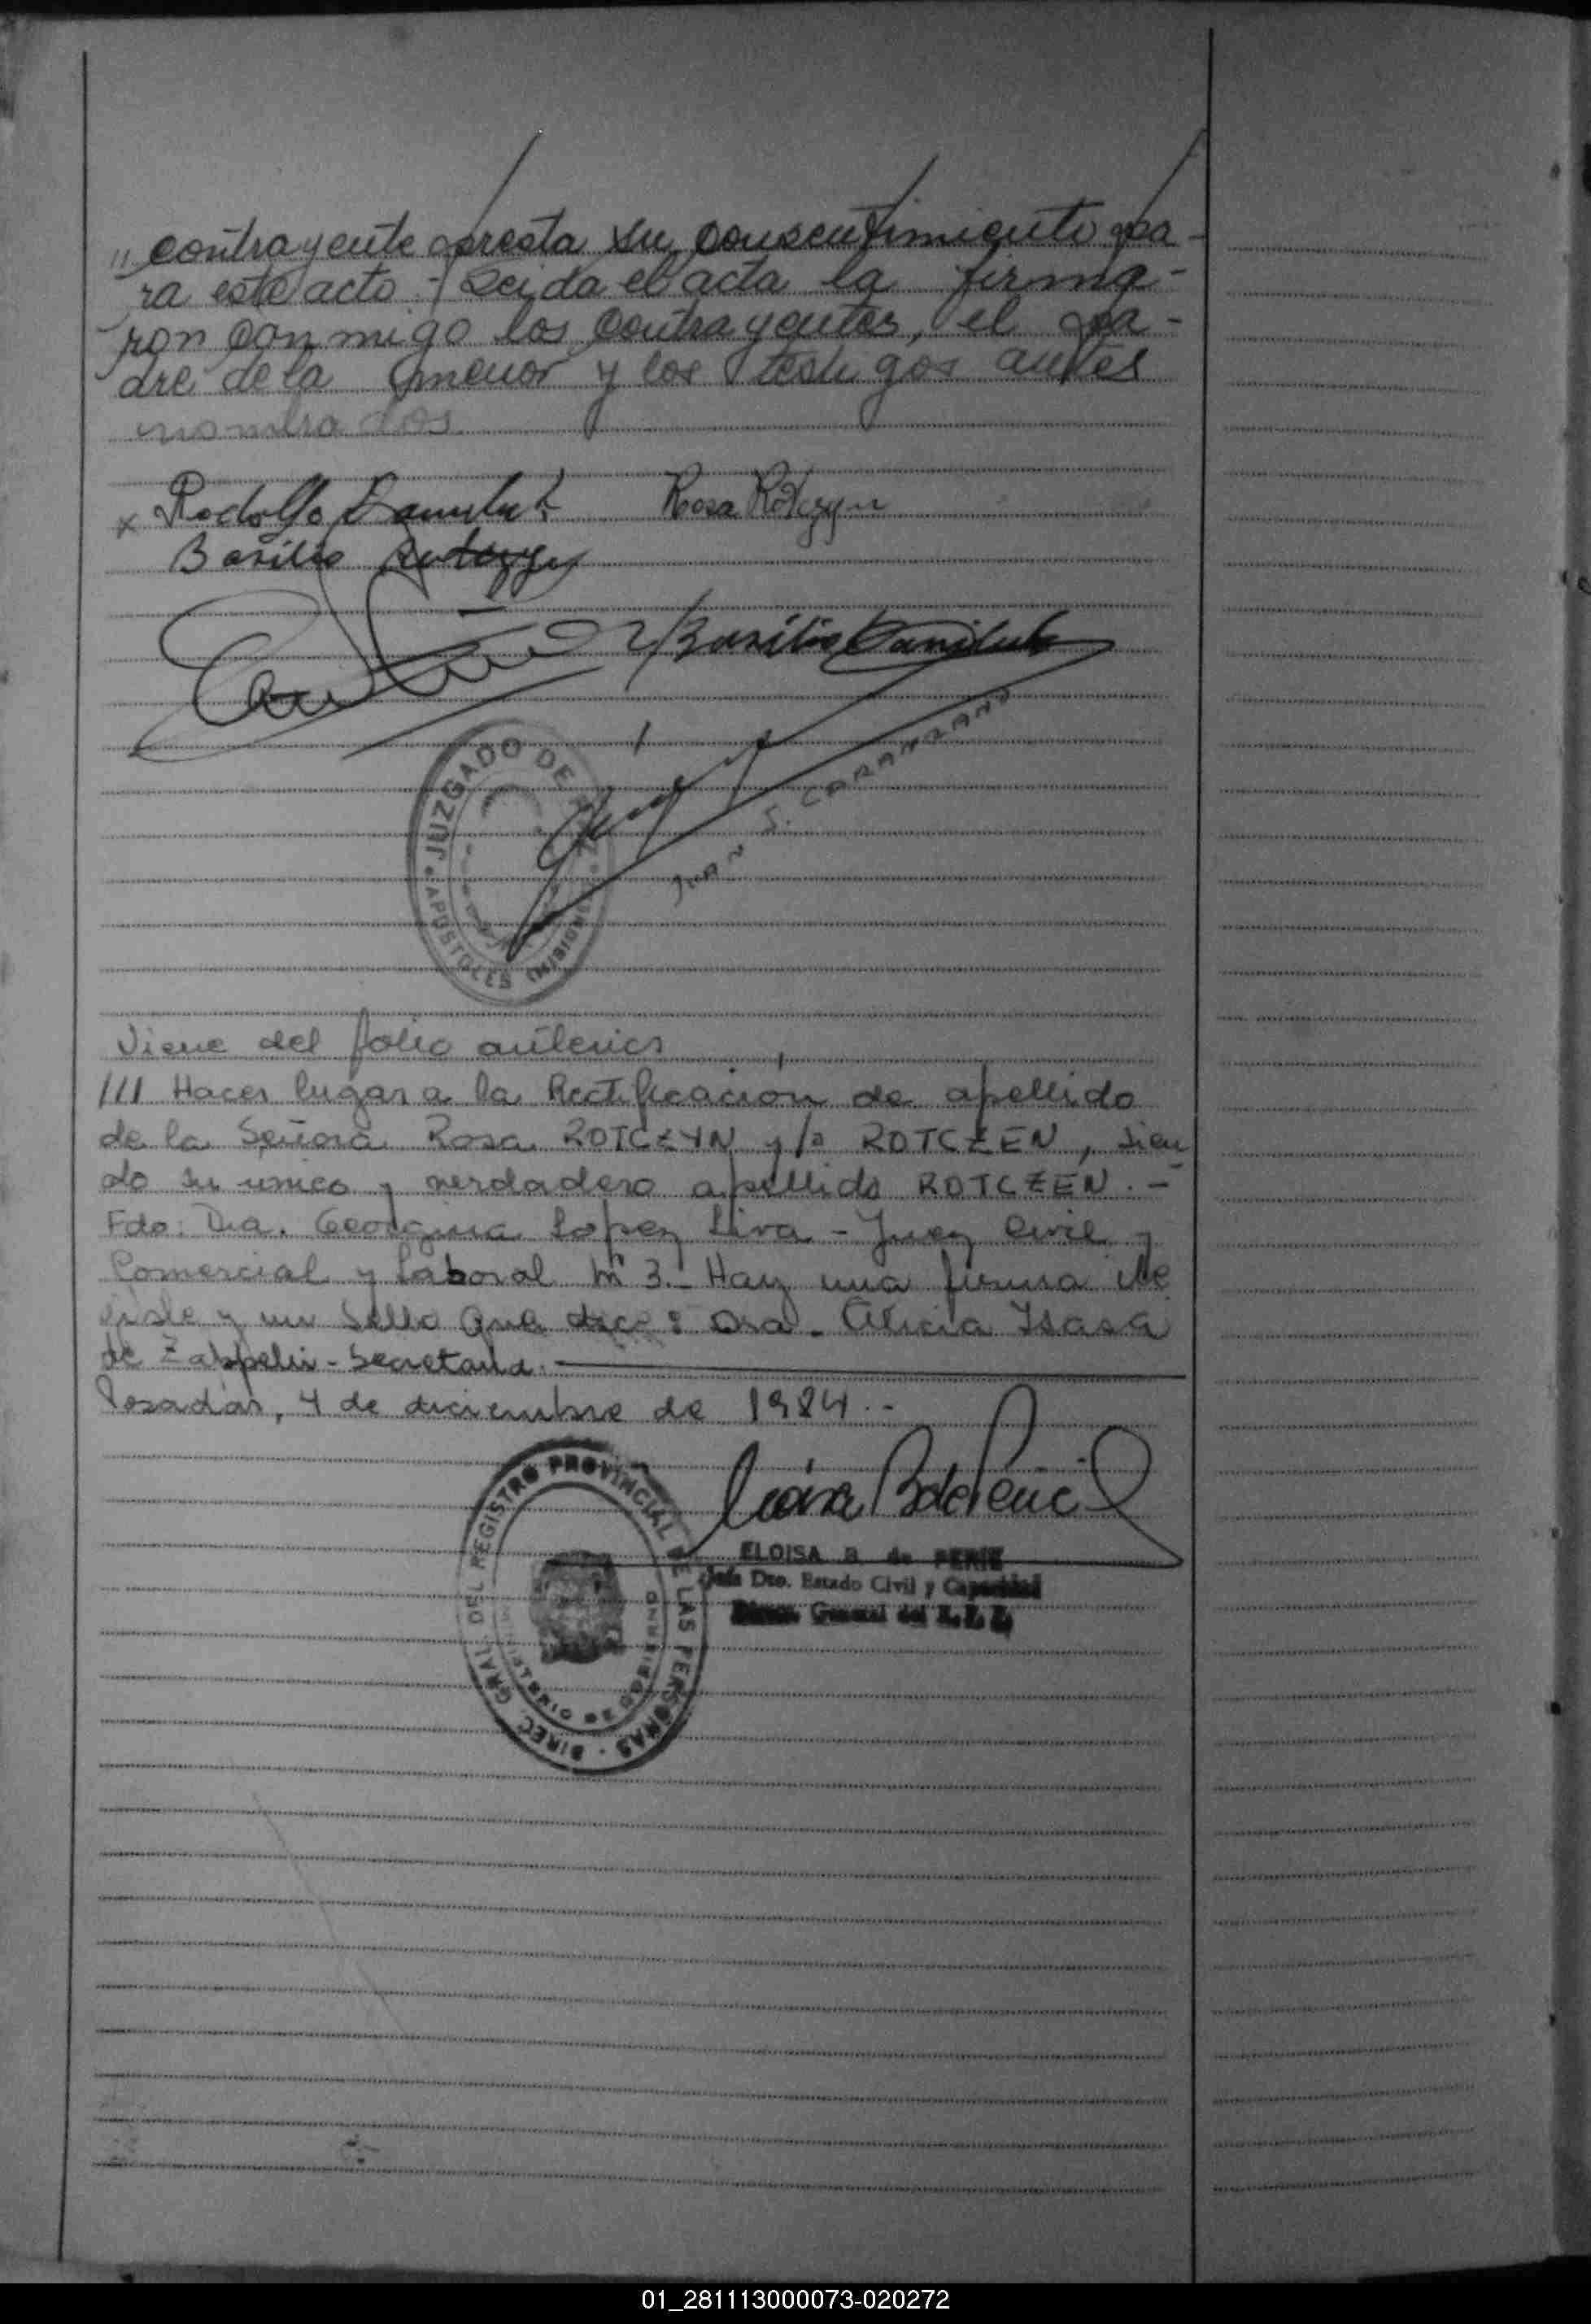 "contrayente presta su consentimiento pa-
ra este acto - Leida el acta la firma-
ron conmigo los contrayentes, el pa-
dre de la menor y los testigos antes
nombrados
x Rodolfo Daniluk Rosa Rotczyn
Basilio Rotczyn
Basilio Daniluk
JUZGADO DE PAZ
APOSTOLES (MISIONES)
JUAN S. CARAMZANO
Viene del folio anterior
/// Hacer lugar a la Rectificación de apellido
de la Señora Rosa ROTCZYN y/o ROTCZEN, sien
do su unico y verdadero apellido ROTCZEN. -
Fdo: Dra. Georgina Lopez Liva - Juez Civil y
Comercial y Laboral Nº 3.- Hay una firma ile
gible y un sello que dice: Dra. Alicia Isasa
de Zappelli - Secretaria.
Posadas, 4 de diciembre de 1984.-
DIREC. GRAL. DEL REGISTRO PROVINCIAL DE LAS PERSONAS
MINISTERIO DE GOBIERNO
ELOISA B. de PERIE
Jefa Dto. Estado Civil y Capacidad
General del
01_281113000073-020272